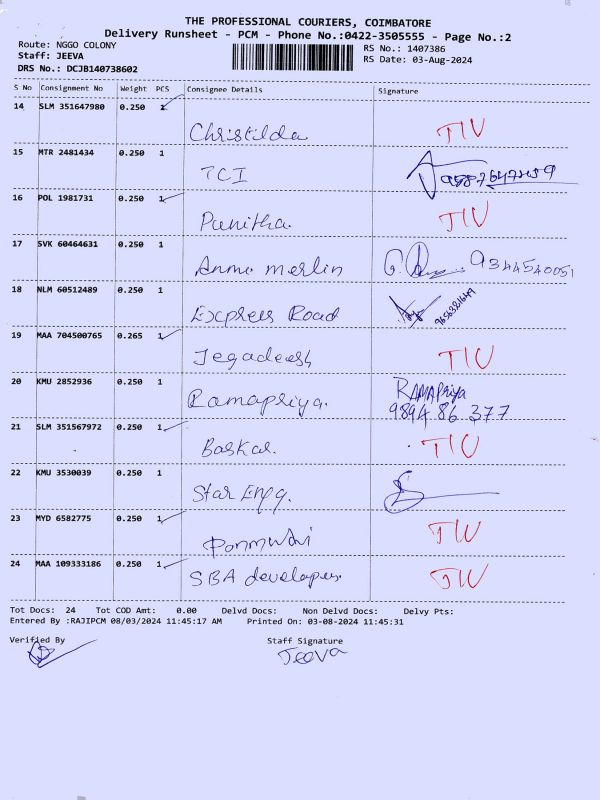 THE PROFESSIONAL COURIERS, COIMBATORE
Delivery Runsheet - PCM - Phone No.:0422-3505555 - Page No.:2
Route: NGGO COLONY RS No.: 1407386
Staff: JEEVA RS Date: 03-Aug-2024
DRS No.: DCJB140738602
S No Consignment No Weight PCS Consignee Details Signature
14 SLM 351647980 0.250 1
Christilda TIU
15 MTR 2481434 0.250 1
TCI
16 POL 1981731 0.250 1
Punitha. TIU
17 SVK 60464631 0.250 1
Anme merlin 9344540051
18 NLM 60512489 0.250 1
Express Road
19 MAA 704500765 0.265 1
Jegadeesh TIU
20 KMU 2852936 0.250 1 RAMAPriya
Ramapriya. 9894 86 377
21 SLM 351567972 0.250 1
Baskar. TIU
22 KMU 3530039 0.250 1
Star Engg.
23 MYD 6582775 0.250 1
TIU
24 MAA 109333186 0.250 1
SBA developer TIU
Tot Docs: 24 Tot COD Amt: 0.00 Delvd Docs: Non Delvd Docs: Delvy Pts:
Entered By :RAJIPCM 08/03/2024 11:45:17 AM Printed On: 03-08-2024 11:45:31
Verified By Staff Signature
Jeeva